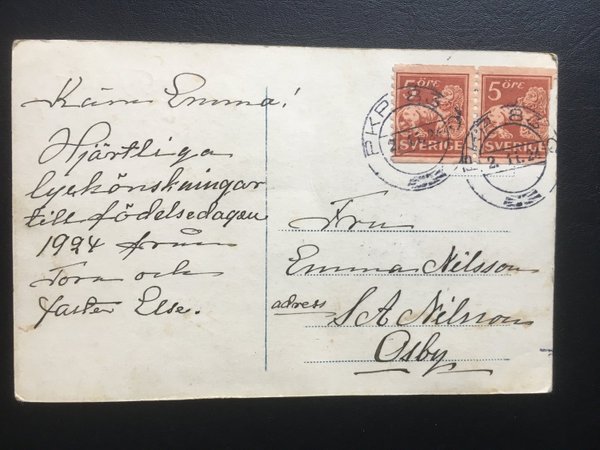 Kära Emma!
Hjärtliga
lyckönskningar
till födelsedagen
1924 från
Tora och
faster Else.
5 ÖRE
SVERIGE
5 ÖRE
SVERIGE
PKP 83
PKP 83
Fru
Emma Nilsson
adress S A Nilsson
Osby